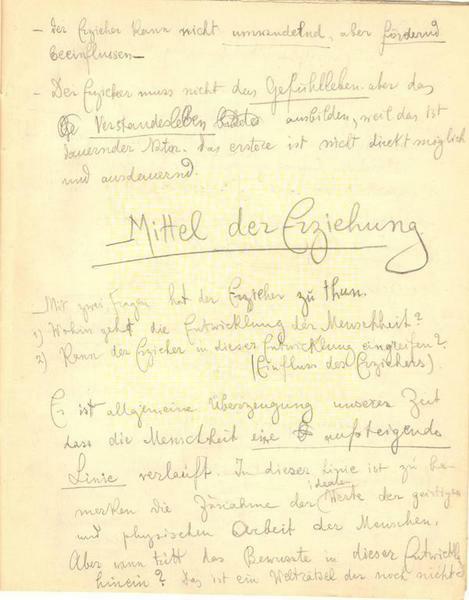 - Der Erzieher kann nicht umwandelnd, aber fördernd
beeinflussen -
- Der Erzieher muss nicht das Gefühlleben aber das
Verstandesleben ausbilden, weil das ist
dauernder Natur. das erstere ist nicht direkt möglich
und ausdauernd.
Mittel der Erziehung
- Mit zwei Fragen hat der Erzieher zu thun.
1) Wohin geht die Entwicklung der Menschheit?
2) Kann der Erzieher in dieser Entwicklung eingreifen?
(Einfluss des Erziehers).
Es ist allgemeine Überzeugung unserer Zeit
dass die Menschheit eine aufsteigende
Linie verläuft. In dieser Linie ist zu be-
merken die Zunahme der idealen Werte der geistigen
und physischen Arbeit der Menschen.
Aber wann tritt das Bewusste in dieser Entwickl
hinein? Das ist ein Welträtsel der noch nicht